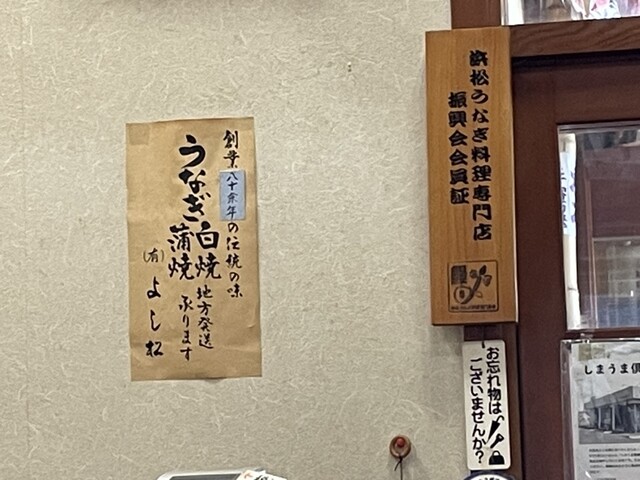 浜松うなぎ料理専門店
振興会会員証
創業八十余年の伝統の味
うなぎ白焼
蒲焼
地方発送
承ります
(有)よし松
お忘れ物は
ございませんか?
しまうま倶